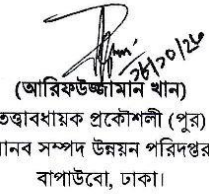 (আরিফউজ্জামান খান)
তত্ত্বাবধায়ক প্রকৌশলী (পুর)
মানব সম্পদ উন্নয়ন পরিদপ্তর
বাপাউবো, ঢাকা।